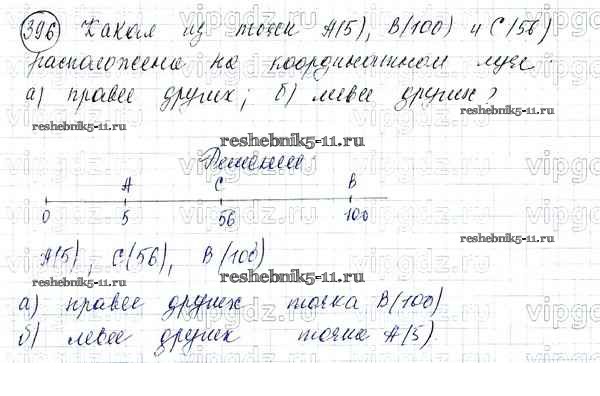 396 Какая из точек А(5), В(100) и С(56)
расположена на координатном луче:
а) правее других; б) левее других?
reshebnik5-11.ru reshebnik5-11.ru
reshebnik5-11.ru
Решение:
А С В
0 5 56 100
А(5), С(56), В(100)
reshebnik5-11.ru
reshebnik5-11.ru
а) правее других точка В(100)
б) левее других точка А(5).
vipgdz.ru